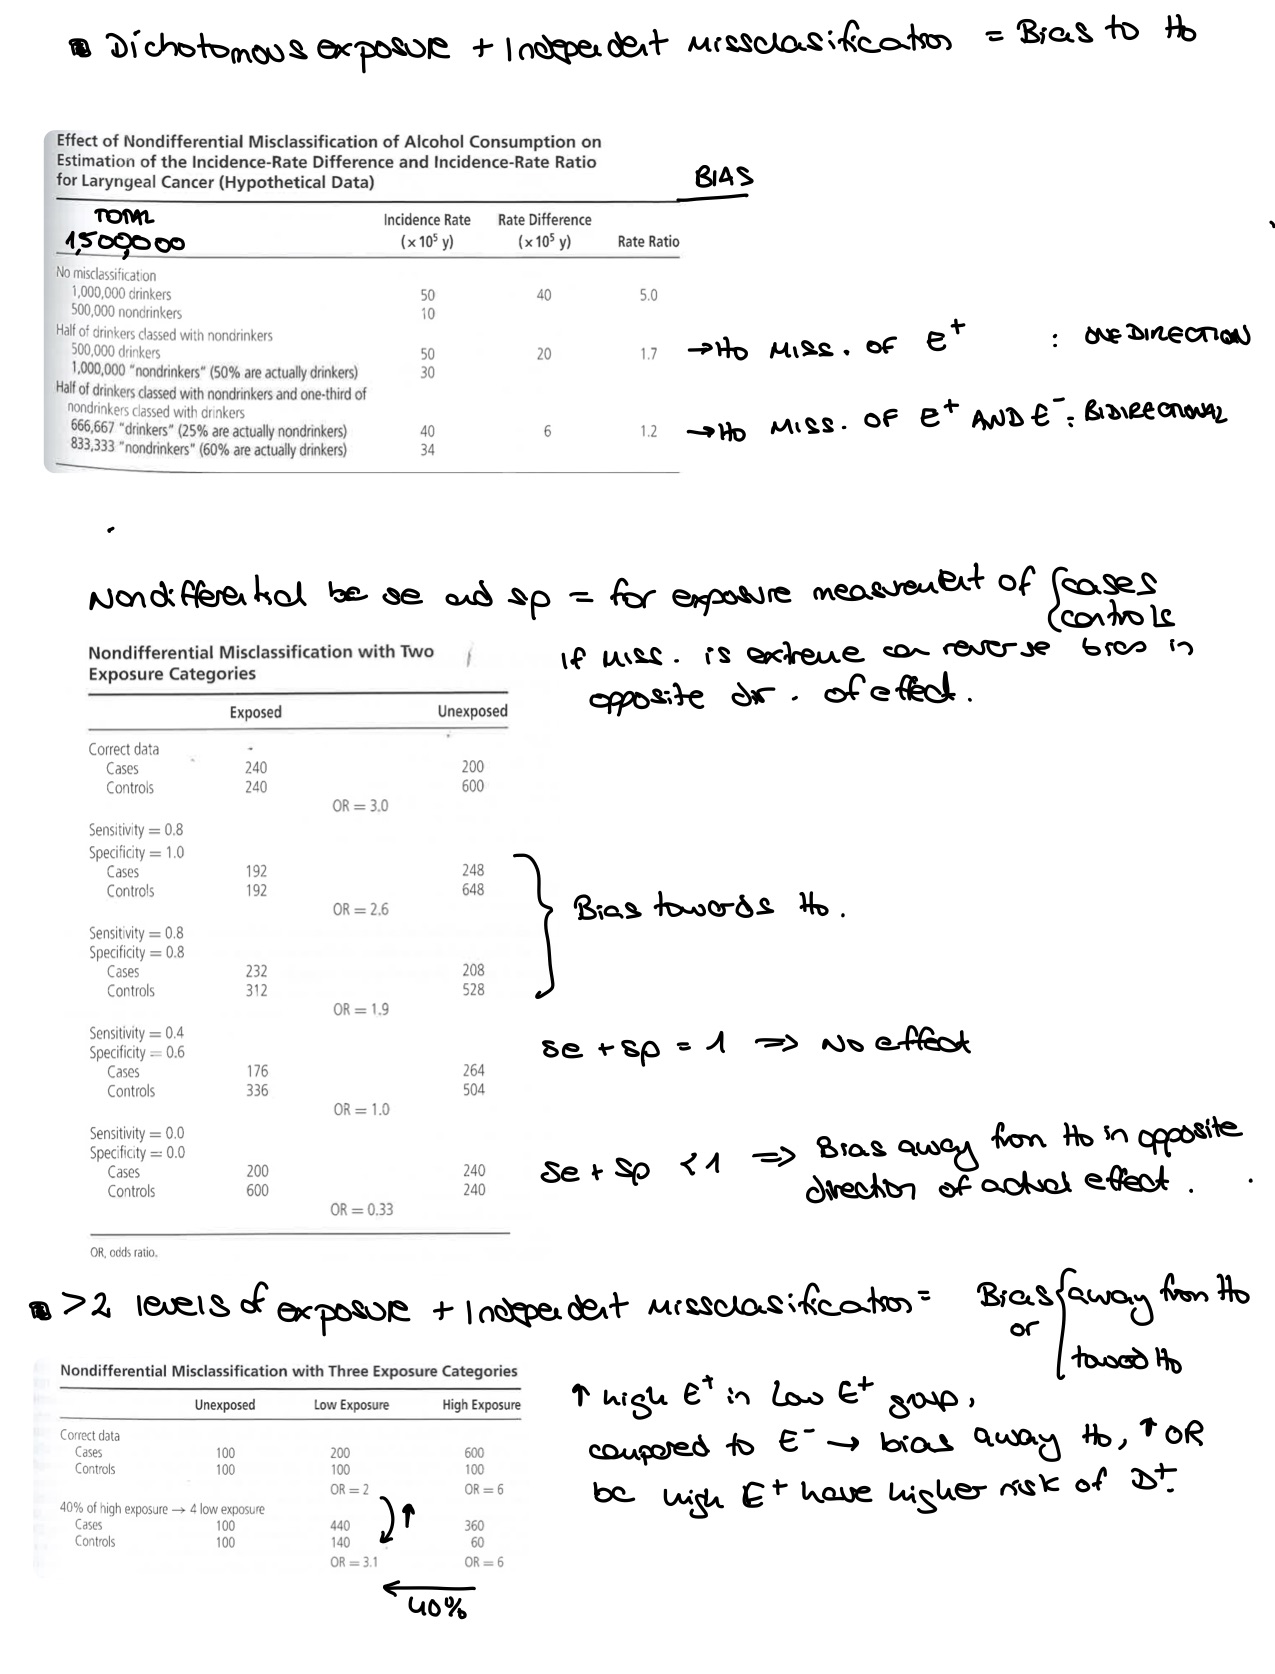 Dichotomous exposure + Independent missclasification = Bias to Ho
Effect of Nondifferential Misclassification of Alcohol Consumption on
Estimation of the Incidence-Rate Difference and Incidence-Rate Ratio
for Laryngeal Cancer (Hypothetical Data)
BIAS
TOTAL
1,500,000
Incidence Rate Rate Difference
(× 10⁵ y) (× 10⁵ y) Rate Ratio
No misclassification
1,000,000 drinkers 50 40 5.0
500,000 nondrinkers 10
Half of drinkers classed with nondrinkers
500,000 drinkers 50 20 1.7 → Ho MISS. OF E+ : ONE DIRECTION
1,000,000 "nondrinkers" (50% are actually drinkers) 30
Half of drinkers classed with nondrinkers and one-third of
nondrinkers classed with drinkers
666,667 "drinkers" (25% are actually nondrinkers) 40 6 1.2 → Ho MISS. OF E+ AND E-: BIDIRECTIONAL
833,333 "nondrinkers" (60% are actually drinkers) 34
Nondifferential bc se and sp = for exposure measurement of { cases
controls
If miss. is extreme can reverse bias in
opposite dir. of effect.
Nondifferential Misclassification with Two
Exposure Categories
Exposed Unexposed
Correct data
Cases 240 200
Controls 240 600
OR = 3.0
Sensitivity = 0.8
Specificity = 1.0
Cases 192 248
Controls 192 648
OR = 2.6
Bias towards Ho.
Sensitivity = 0.8
Specificity = 0.8
Cases 232 208
Controls 312 528
OR = 1.9
Sensitivity = 0.4
Specificity = 0.6
se + sp = 1 => No effect
Cases 176 264
Controls 336 504
OR = 1.0
Sensitivity = 0.0
Specificity = 0.0
Cases 200 240
Controls 600 240
OR = 0.33
se + sp < 1 => Bias away from Ho in opposite
direction of actual effect.
OR, odds ratio.
>2 levels of exposure + Independent missclasification = Bias { away from Ho
or
toward Ho
Nondifferential Misclassification with Three Exposure Categories
Unexposed Low Exposure High Exposure
Correct data
Cases 100 200 600
Controls 100 100 100
OR = 2 OR = 6
40% of high exposure → 4 low exposure
Cases 100 440 360
Controls 100 140 60
OR = 3.1 OR = 6
↑
40%
↑ high E+ in low E+ group,
compared to E- → bias away Ho, ↑ OR
bc high E+ have higher risk of D+.